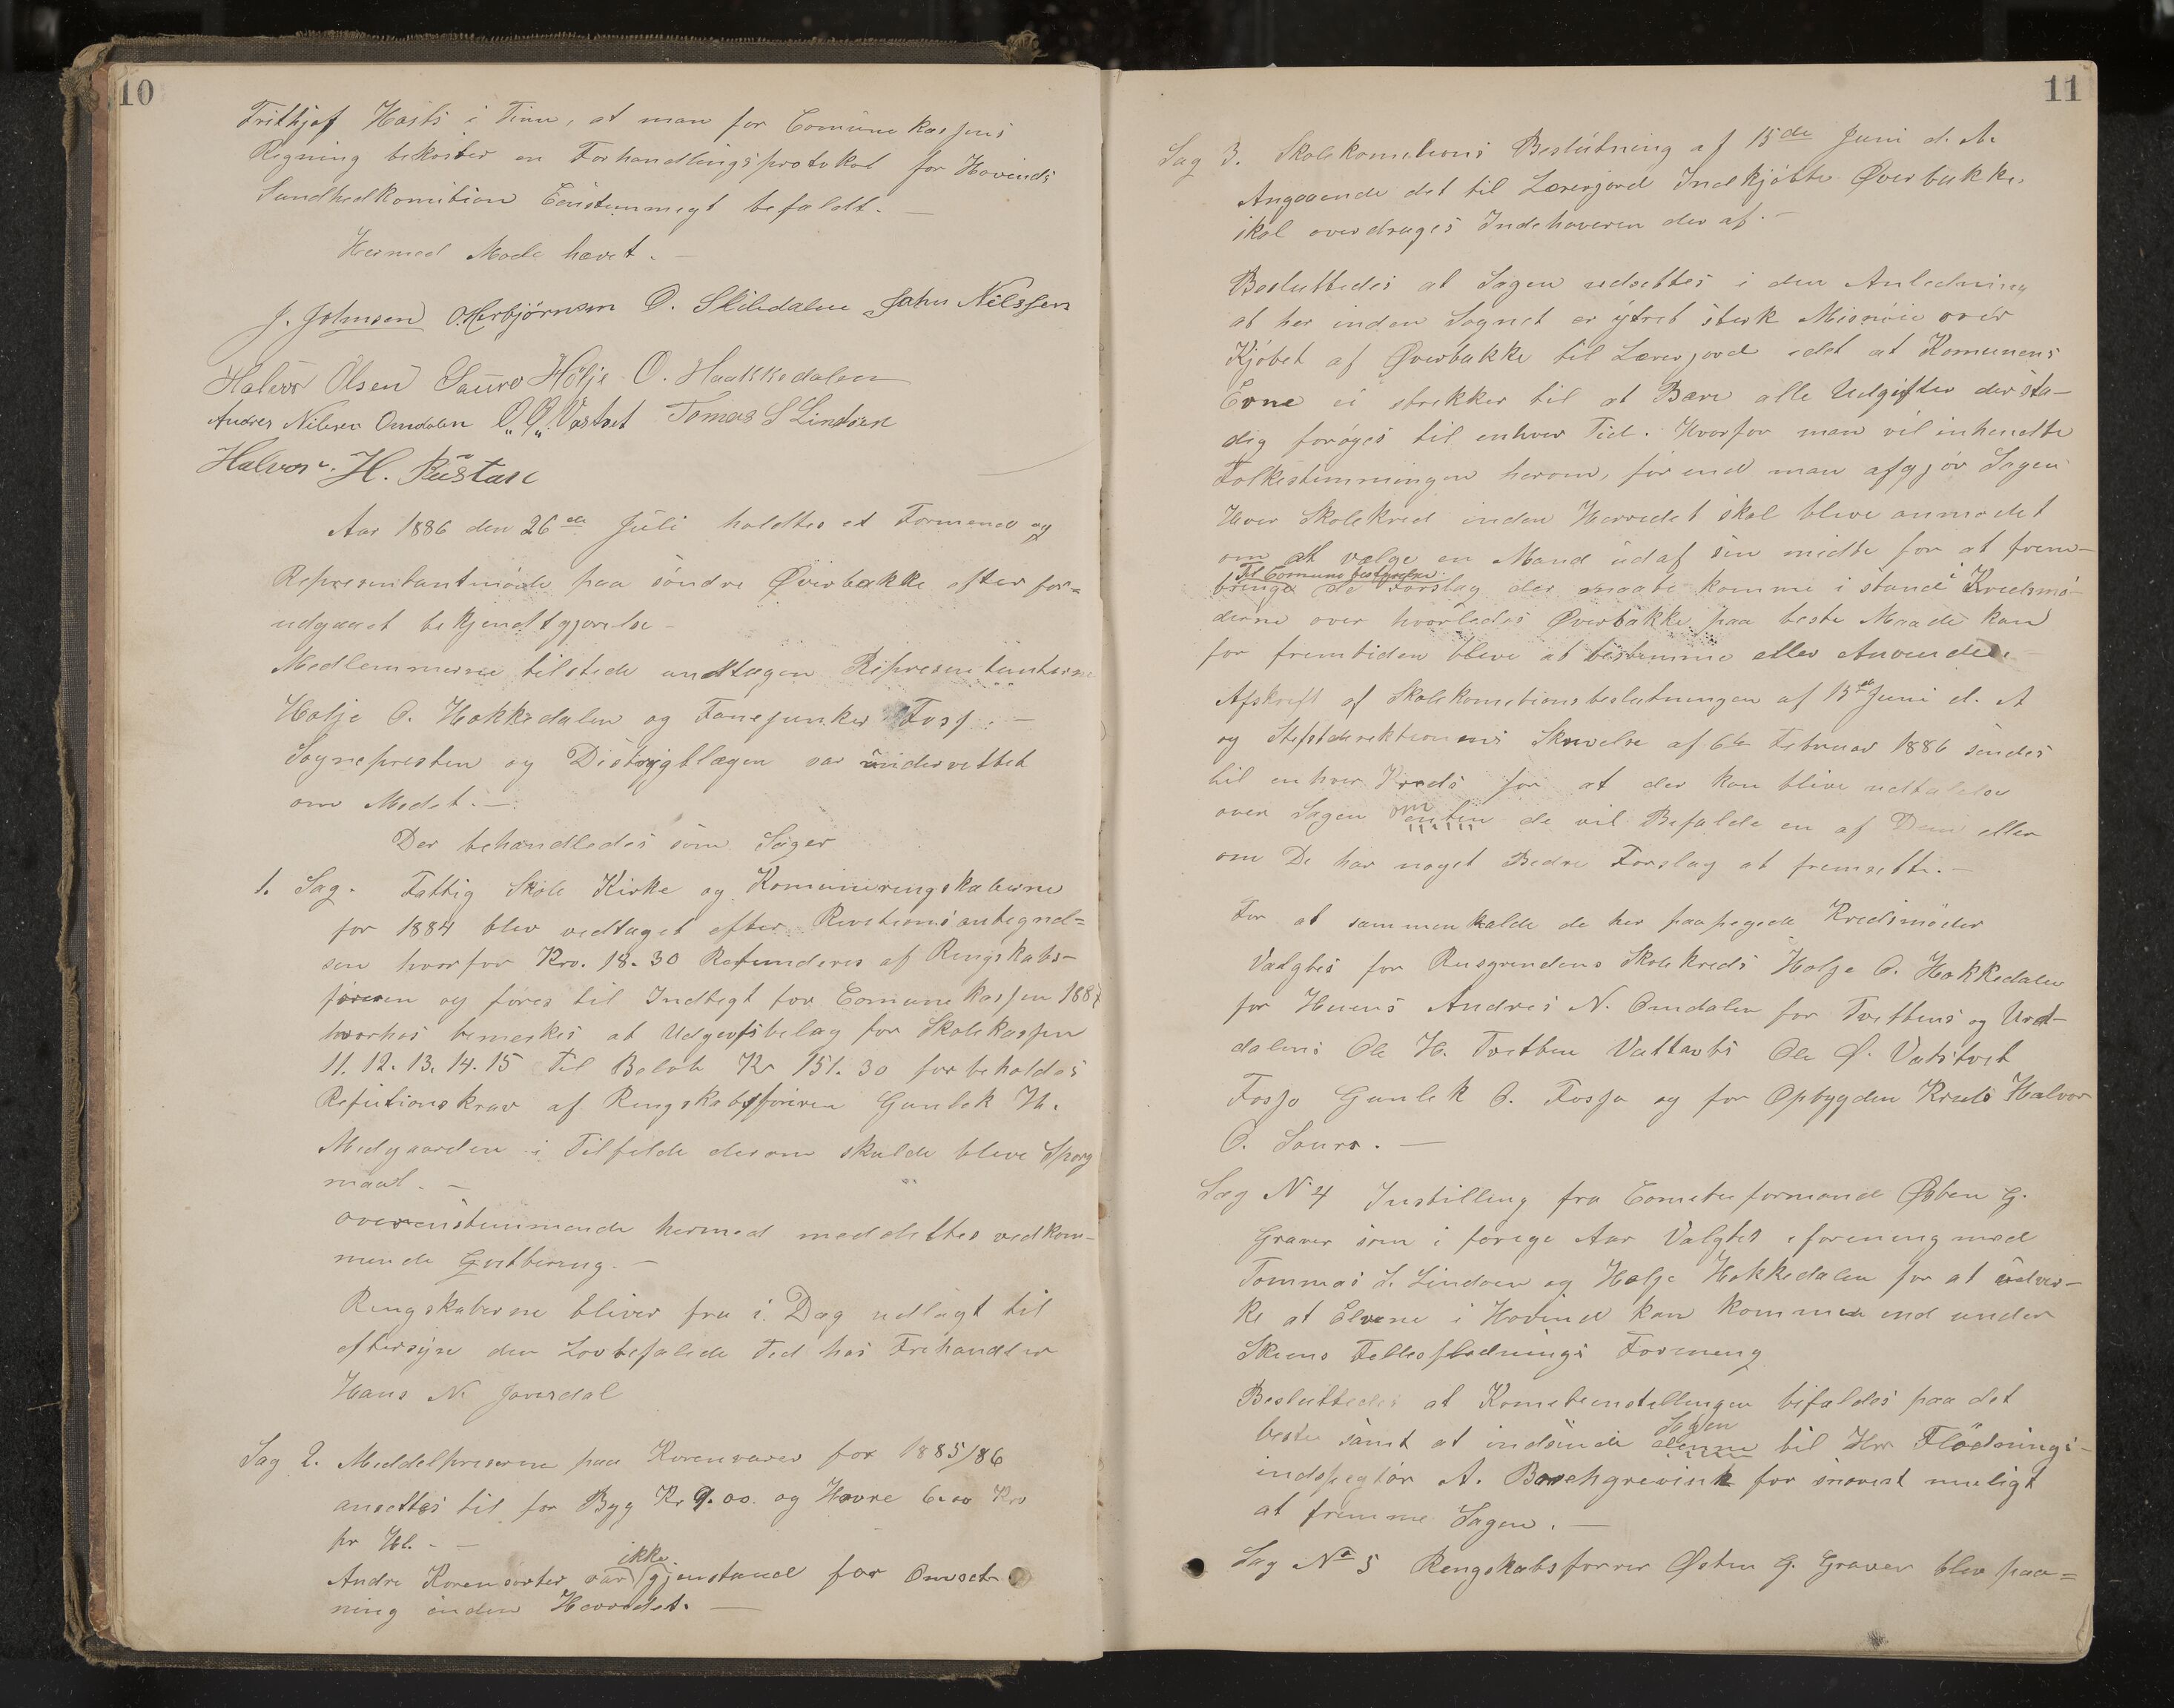 10
Frithjof Hasts i Tinn, at man for Comünekassens
Regning bekoster en Forhandlingsprotokol for Hovinds
Sundhedkomition Eenstemmegt befaldt. —
Hermed Mode hævet. —
J. Johnsen O. Herbjörnsen O. Sliledalen John Nilssen
Halvor Olsen Sauro Hölje O. Haakkedalen
Andres Nilsen Omdalen O. O. Vastvet Tomas S Lindoen
Halvor H. Rustan
Aar 1886 den 26de Juli holdtes et Formend og
Representantmöde paa söndre Øverbakke efter for=
udgaaet bekjendtgjørelse —
Medlemmerne tilstede undtagen Representanterne
Holje O. Hakkedalen og Fanejunker Foss. —
Sognepresten og Distrigtlægen var ündervettet
om Modet. —
Der behandledes som Sager
1. Sag. Fattig Skole Kirke og Komunerengskaberne
for 1884 blev vedtaget efter Revetionsantegnel=
sen hvorfor Kro. 18.30 Refunderes af Rengskabs-
föreren og fores til Indtegt for Comunekassen 1887
hvorhos bemerkes at Udgevtsbelag for Skolekassen
11. 12. 13. 14. 15 Til Belob Kr 151.30 forbeholdes
Refutionskrav af Rengskabsföreren Gunlek H.
Medgaarden i Tilfelde derom skulde bleve Sporg
maal. —
overenstemmende hermed meddeltes vedkom-
mende Qvitbering. —
Rengskaberne bliver fra i Dag udlagt til
eftersyn den Lovbefalede Ted hos Frihandler
Hans N. Jøversdal
Sag 2. Meddelpreserne paa Korenvarer for 1885/86
ansettes til for Byg Kr 9.00. og Havre 6.00 Kro
pr Hl. - —
ikke
Andre Korensorter var gjenstand for Omset-
ning inden Herredet. —
11
Sag 3. Skolekomitions Beslutning af 15de Juni d. A.
Angaaende det til Lærerjord Indkjöbte Øverbakke,
skal overdrages Indehaveren der af. —
Besluttedes at Sagen udsettes i den Anledning
at her inden Sognet er ytret sterk Misnöie over
Kjöbet af Øverbakke til Lærerjord idet at Komunens
Evne ei strekker til at Bære alle Udgifter der sta-
dig foröges til enhver Tid. Hvorfor man vil inhendte
Folkestemningen herom, förend man afgjör Sagen
Hver Skolekred inden Herredet skal bleve anmodet
om at vælge en Mand üdaf sin midte for at frem-
Til Comunebestyrelsen
bringe de Forslag der maate komme i stand i Kredsmö-
derne over hvorledes Øverbakke paa beste Maade kan
for fremtiden bleve at bestemme eller Anvendes. —
Afskreft af Skolekometionsbeslutningen af 15de Juni d. A
og Steftdirektionens Skrevelse af 6te Februar 1886 sendes
til enhver Kreds for at der kan blive udtalelse
over Sagen om enten de vil Befalde en af Dem eller
om De har noget Bedre Forslag at fremsette. —
For at sammenkalde de her paapegede Kredsmöder
Valgtes for Busgrendens Skolekreds Holje O. Hakkedalen
for Huens Andres N. Omdalen for Tvettens og Urd-
dalens Ole H. Tvetten Ole O. Vatstvet
Fosso Gunlek O. Fosso og for Opbygden Kreds Halvor
O. Sauro. —
Sag N. 4 Instilling fra Cometeeformand Østen G.
Graver som i forege Aar Valgtes i forening med
Tommas S. Lindoen og Holje Hakkedalen for at üdver-
ke at Elvene i Hovind kan komme ind under
Skiens Fellesflødnings Forening
Besluttedes at Kometeenstellingen bifaldes paa det
Sagen
beste samt at indsende denne til Hr Flödnings-
indspegtör A. Borchgrevink for snarest muligt
at fremme Sagen. —
Sag No 5 Rengskabsforer Østen G. Graver blev paa=